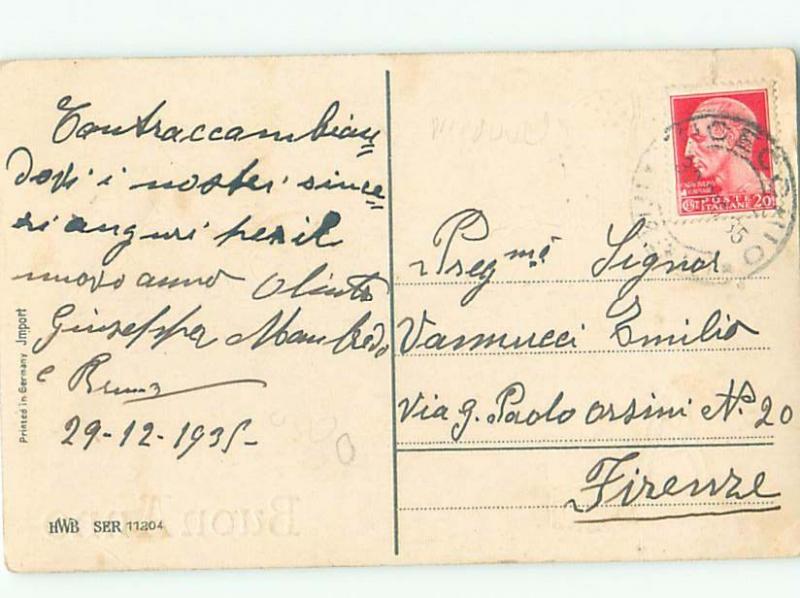 Contraccambian
dovi i nostri since
ri auguri per il
nuovo anno Olinto
Giuseppa Manfredo
e Bruna
29-12-1935-
Printed in Germany Jmport
HWB SER 11204
Buon Anno
POSTE
ITALIANE
20
35
Preg.mo Signor
Vannucci Emilio
Via G. Paolo Orsini No. 20
Firenze